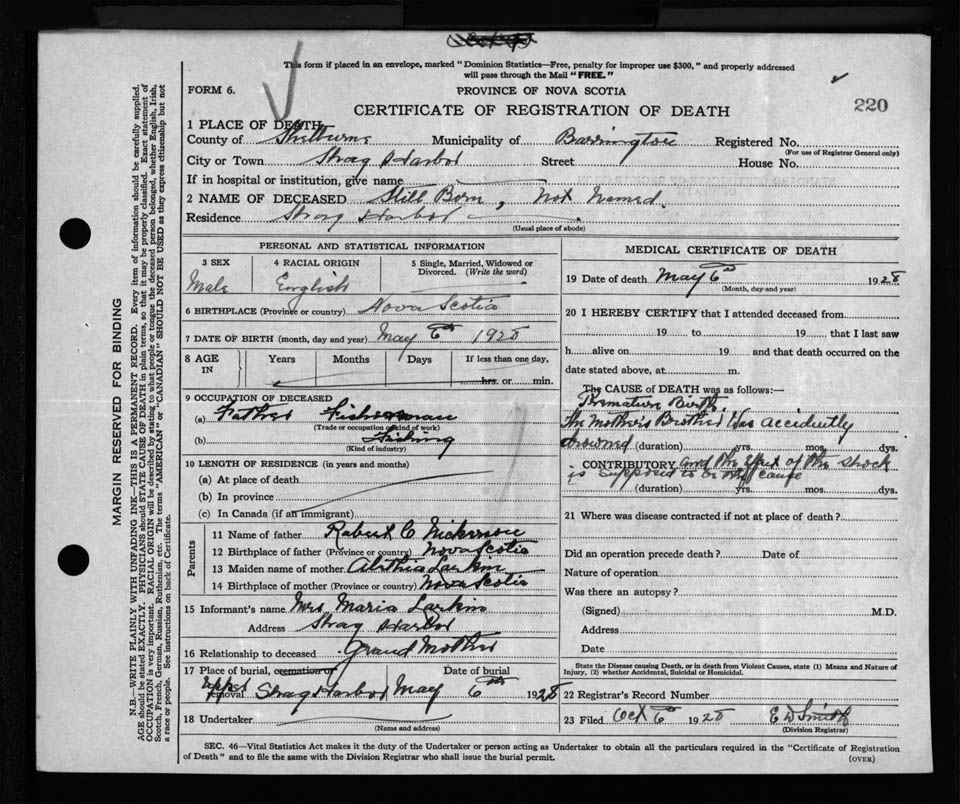 This form if placed in an envelope, marked "Dominion Statistics—Free, penalty for improper use $300," and properly addressed
will pass through the Mail "FREE."
FORM 6.
PROVINCE OF NOVA SCOTIA
CERTIFICATE OF REGISTRATION OF DEATH
220
1 PLACE OF DEATH
County of Shelburne Municipality of Barrington Registered No.
(For use of Registrar General only)
City or Town Shag Harbor Street House No.
If in hospital or institution, give name
2 NAME OF DECEASED Still Born, Not Named.
Residence Shag Harbor
(Usual place of abode)
PERSONAL AND STATISTICAL INFORMATION
3 SEX 4 RACIAL ORIGIN 5 Single, Married, Widowed or
Divorced. (Write the word)
Male English
6 BIRTHPLACE (Province or country) Nova Scotia
7 DATE OF BIRTH (month, day and year) May 6th 1928
8 AGE IN Years Months Days If less than one day,
hrs. or min.
9 OCCUPATION OF DECEASED
(a) Father Fisherman
(Trade or occupation or kind of work)
(b) Fishing
(Kind of industry)
10 LENGTH OF RESIDENCE (in years and months)
(a) At place of death
(b) In province
(c) In Canada (if an immigrant)
Parents
11 Name of father Robert C Nickerson
12 Birthplace of father (Province or country) Nova Scotia
13 Maiden name of mother Larkin
14 Birthplace of mother (Province or country) Nova Scotia
15 Informant's name Mrs Maria Larkin
Address Shag Harbor
16 Relationship to deceased Grand Mother
17 Place of burial, cremation or Date of burial
removal Upper Shag Harbor May 6th 1928
18 Undertaker
(Name and address)
MEDICAL CERTIFICATE OF DEATH
19 Date of death May 6th 1928
(Month, day and year)
20 I HEREBY CERTIFY that I attended deceased from
19 to 19 that I last saw
h alive on 19 and that death occurred on the
date stated above, at m.
The CAUSE of DEATH was as follows:—
Premature Birth
The Mothers Brother Was accidently
drowned (duration) yrs. mos. dys.
CONTRIBUTORY and the effect of the shock
is supposed to be the cause
(duration) yrs. mos. dys.
21 Where was disease contracted if not at place of death?
Did an operation precede death? Date of
Nature of operation
Was there an autopsy?
(Signed) M.D.
Address
Date
State the Disease causing Death, or in death from Violent Causes, state (1) Means and Nature of
Injury, (2) whether Accidental, Suicidal or Homicidal.
22 Registrar's Record Number
23 Filed Oct 6th 1928 E D Smith
(Division Registrar)
SEC. 46—Vital Statistics Act makes it the duty of the Undertaker or person acting as Undertaker to obtain all the particulars required in the "Certificate of Registration
of Death" and to file the same with the Division Registrar who shall issue the burial permit.
(OVER)
MARGIN RESERVED FOR BINDING
N.B.—WRITE PLAINLY WITH UNFADING INK—THIS IS A PERMANENT RECORD. Every item of information should be carefully supplied.
AGE should be stated EXACTLY. PHYSICIANS should STATE CAUSE OF DEATH in plain terms, so that it may be properly classified. Exact statement of
OCCUPATION is very important. RACIAL ORIGIN will be described by stating to what people or tongue the deceased person belonged, whether English, Irish,
Scotch, French, German, Russian, Ruthenian, etc. The terms "AMERICAN" or "CANADIAN" SHOULD NOT BE USED as they express citizenship but not
a race or people. See instructions on back of Certificate.